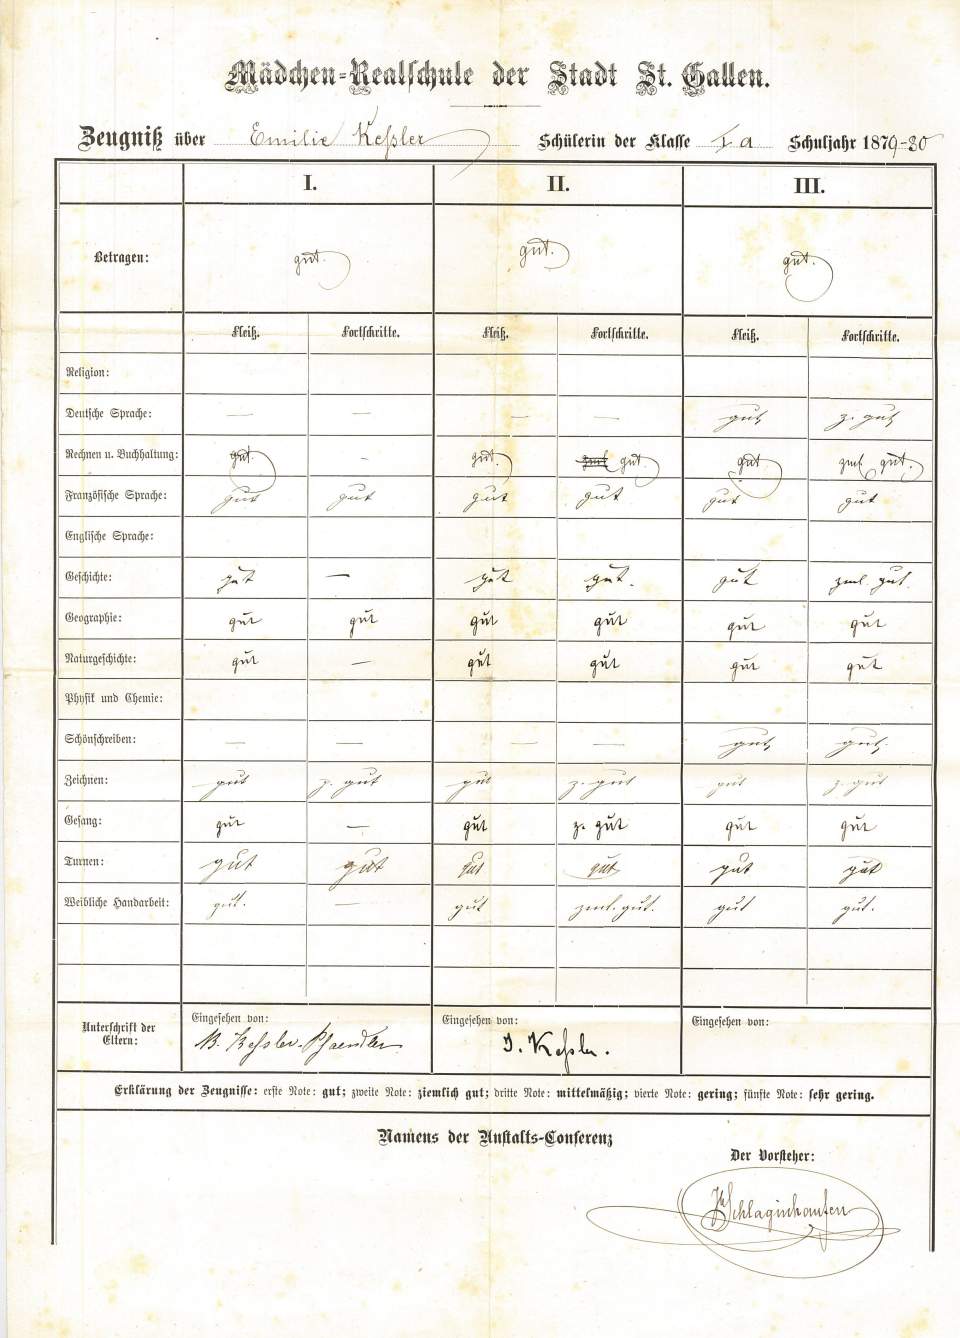 Mädchen-Realschule der Stadt St. Gallen.
Zeugniß über Emilie Keßler Schülerin der Klasse I a Schuljahr 1879-80
I. II. III.
Betragen: gut. gut. gut.
Fleiß. Fortschritte. Fleiß. Fortschritte. Fleiß. Fortschritte.
Religion:
Deutsche Sprache: — — — — gut z. gut
Rechnen u. Buchhaltung: gut. — gut. zml gut. gut zml gut.
Französische Sprache: gut gut gut gut gut gut
Englische Sprache:
Geschichte: gut — gut gut. gut zml. gut.
Geographie: gut gut gut gut gut gut
Naturgeschichte: gut — gut gut gut gut
Physik und Chemie:
Schönschreiben: — — — — gut gut.
Zeichnen: gut z. gut gut z. gut gut z. gut
Gesang: gut — gut z. gut gut gut
Turnen: gut gut gut gut gut gut
Weibliche Handarbeit: gut. — gut zml. gut. gut gut.
Unterschrift der Eltern: Eingesehen von: Eingesehen von: Eingesehen von:
B. Kessler-Pfaendler. J. Keßler.
Erklärung der Zeugnisse: erste Note: gut; zweite Note: ziemlich gut; dritte Note: mittelmäßig; vierte Note: gering; fünfte Note: sehr gering.
Namens der Anstalts-Conferenz
Der Vorsteher:
Schlaginhaufen